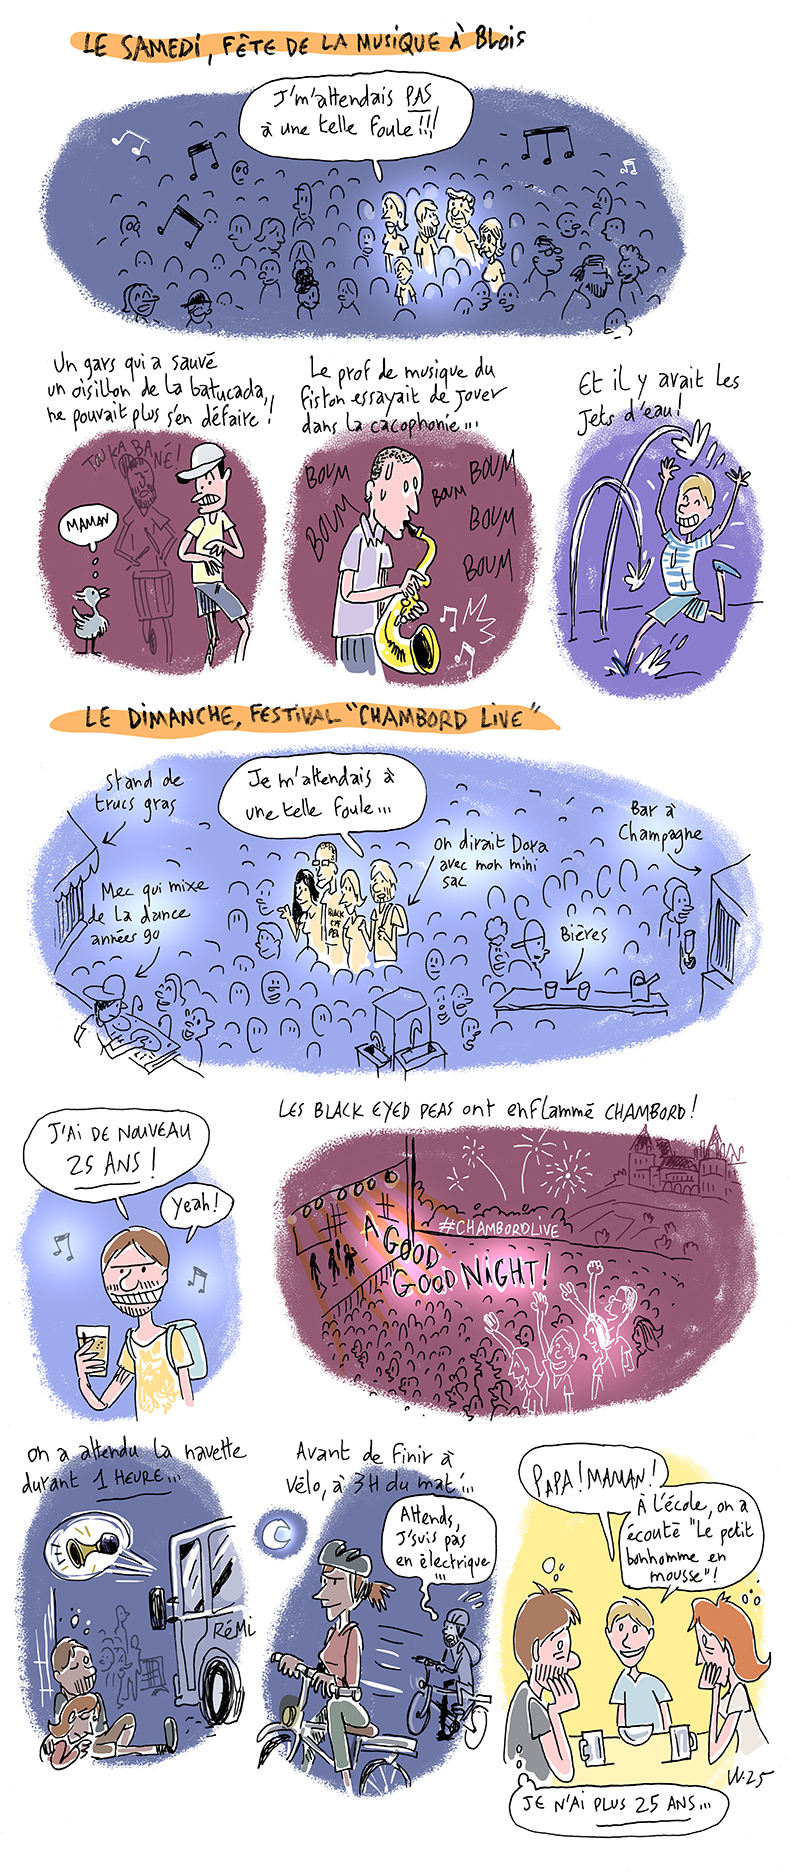 LE SAMEDI, FÊTE DE LA MUSIQUE À BLOIS
J'm'attendais PAS
à une telle foule !!!
Un gars qui a sauvé
un oisillon de la batucada,
ne pouvait plus s'en défaire !
TOUKABANÉ !
MAMAN
Le prof de musique du
fiston essayait de jouer
dans la cacophonie...
BOUM
BOUM
BOUM
BOUM
BOUM
BOUM
Et il y avait les
jets d'eau !
LE DIMANCHE, FESTIVAL "CHAMBORD LIVE"
Stand de
trucs gras
Je m'attendais à
une telle foule...
on dirait Dora
avec mon mini
sac
Bar à
Champagne
Mec qui mixe
de la dance
années 90
BLACK
EYE
PEA
Bières
J'AI DE NOUVEAU
25 ANS !
Yeah !
LES BLACK EYED PEAS ont enflammé CHAMBORD !
#CHAMBORDLIVE
A
GOOD
GOOD NIGHT !
on a attendu la navette
durant 1 HEURE...
RéMi
Avant de finir à
vélo, à 3H du mat'...
Attends,
J'suis pas
en électrique
...
PAPA ! MAMAN !
À l'école, on a
écouté "Le petit
bonhomme en
mousse" !
W.25
JE N'AI PLUS 25 ANS...